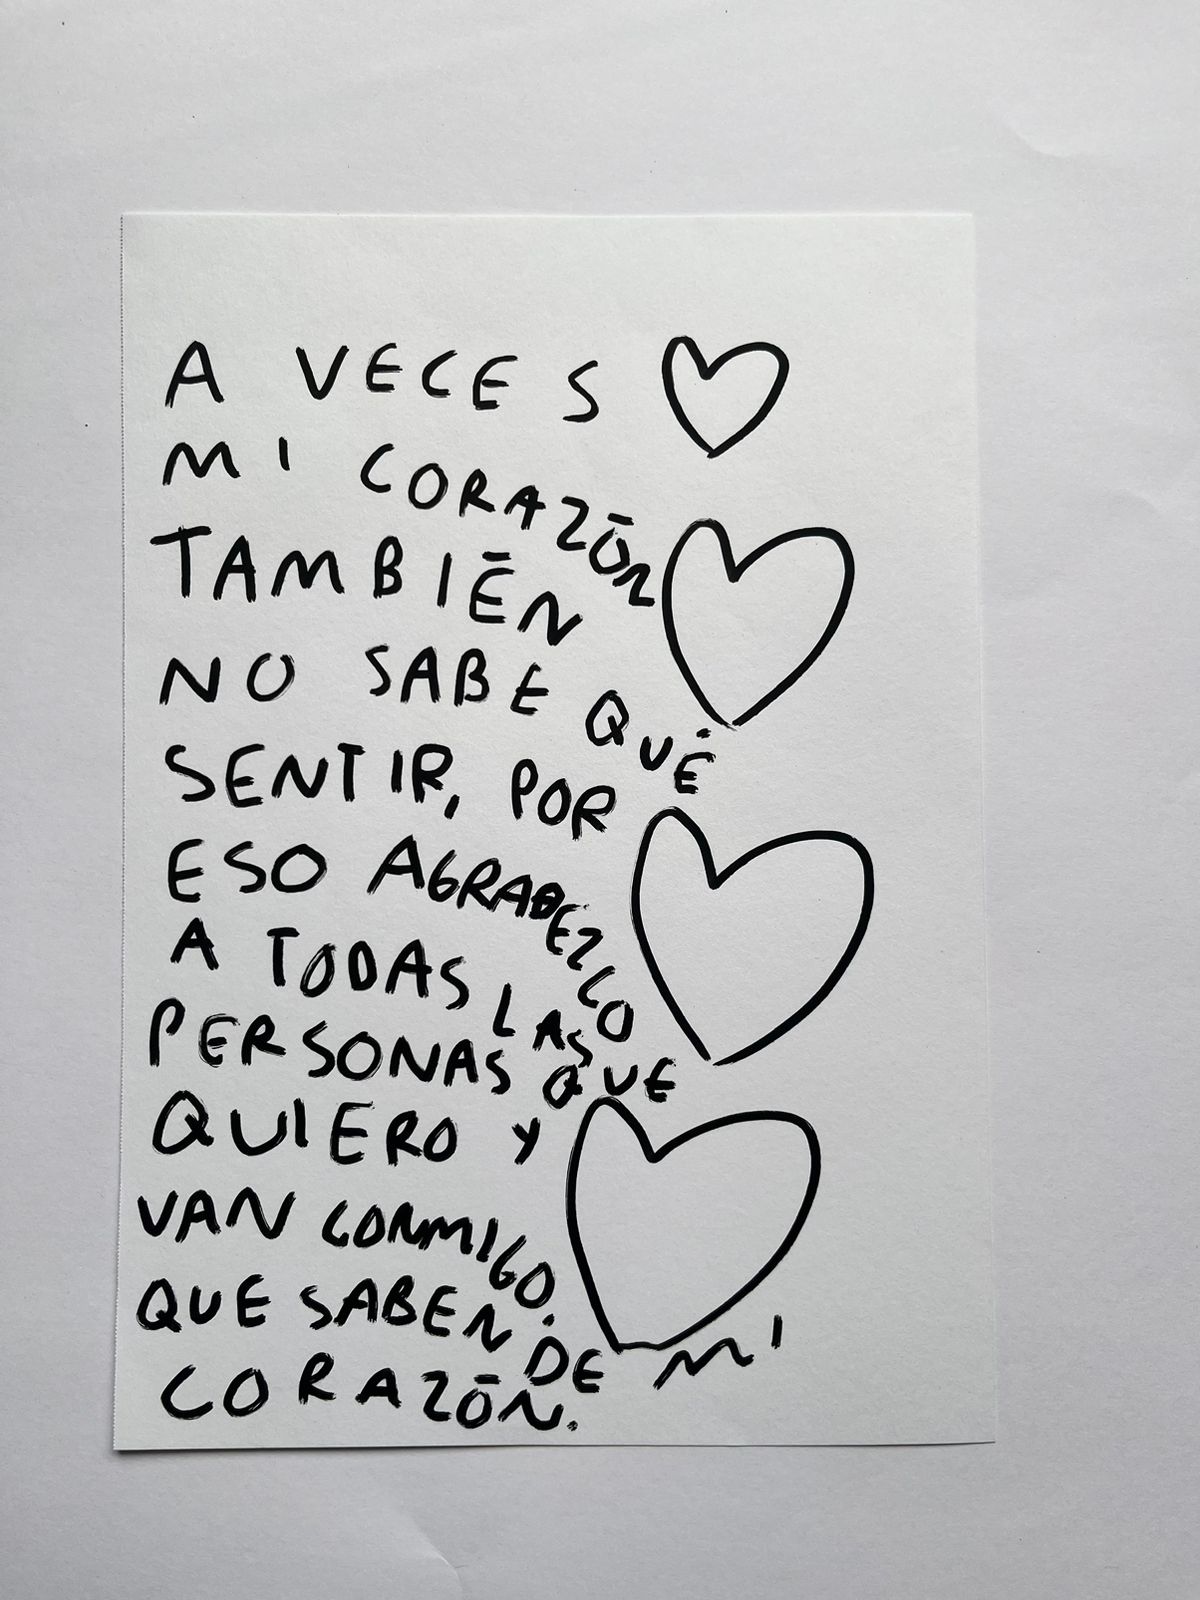 A VECES
MI CORAZÓN
TAMBIÉN
NO SABE QUÉ
SENTIR, POR
ESO AGRADEZCO
A TODAS LAS
PERSONAS QUE
QUIERO Y
VAN CONMIGO.
QUE SABEN DE MI
CORAZÓN.